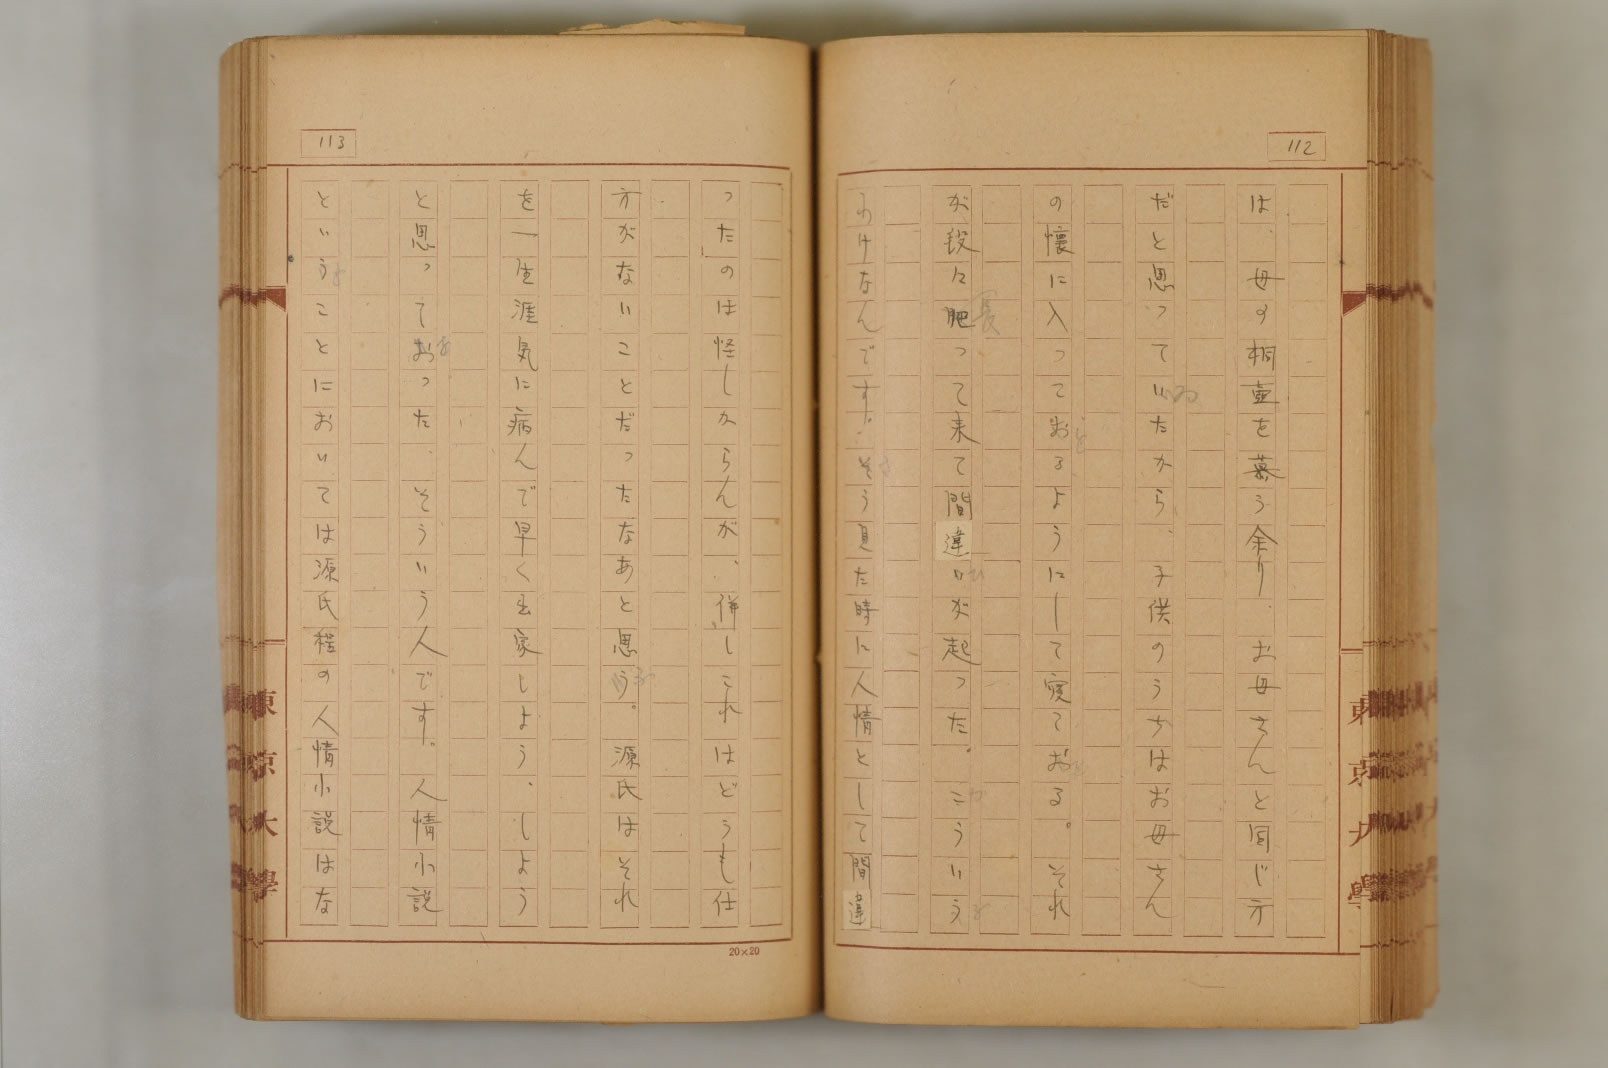 112
は、母の桐壷を慕う余り、お母さんと同じ方
だと思っていたから、子供のうちはお母さん
ゐ
の懐に入っておるようにして寝ておる。それ
を
が段々肥って来て間違いが起った。こういう
長
ひ
わけなんです。そう見た時に人情として間違
東京大學
113
ったのは怪しからんが、併しこれはどうも仕
方がないことだったなあと思う。源氏はそれ
を一生涯気に病んで早く出家しよう、しよう
と思っておった、そういう人です。人情小説
ということにおいては源氏程の人情小説はな
20×20
東京大學